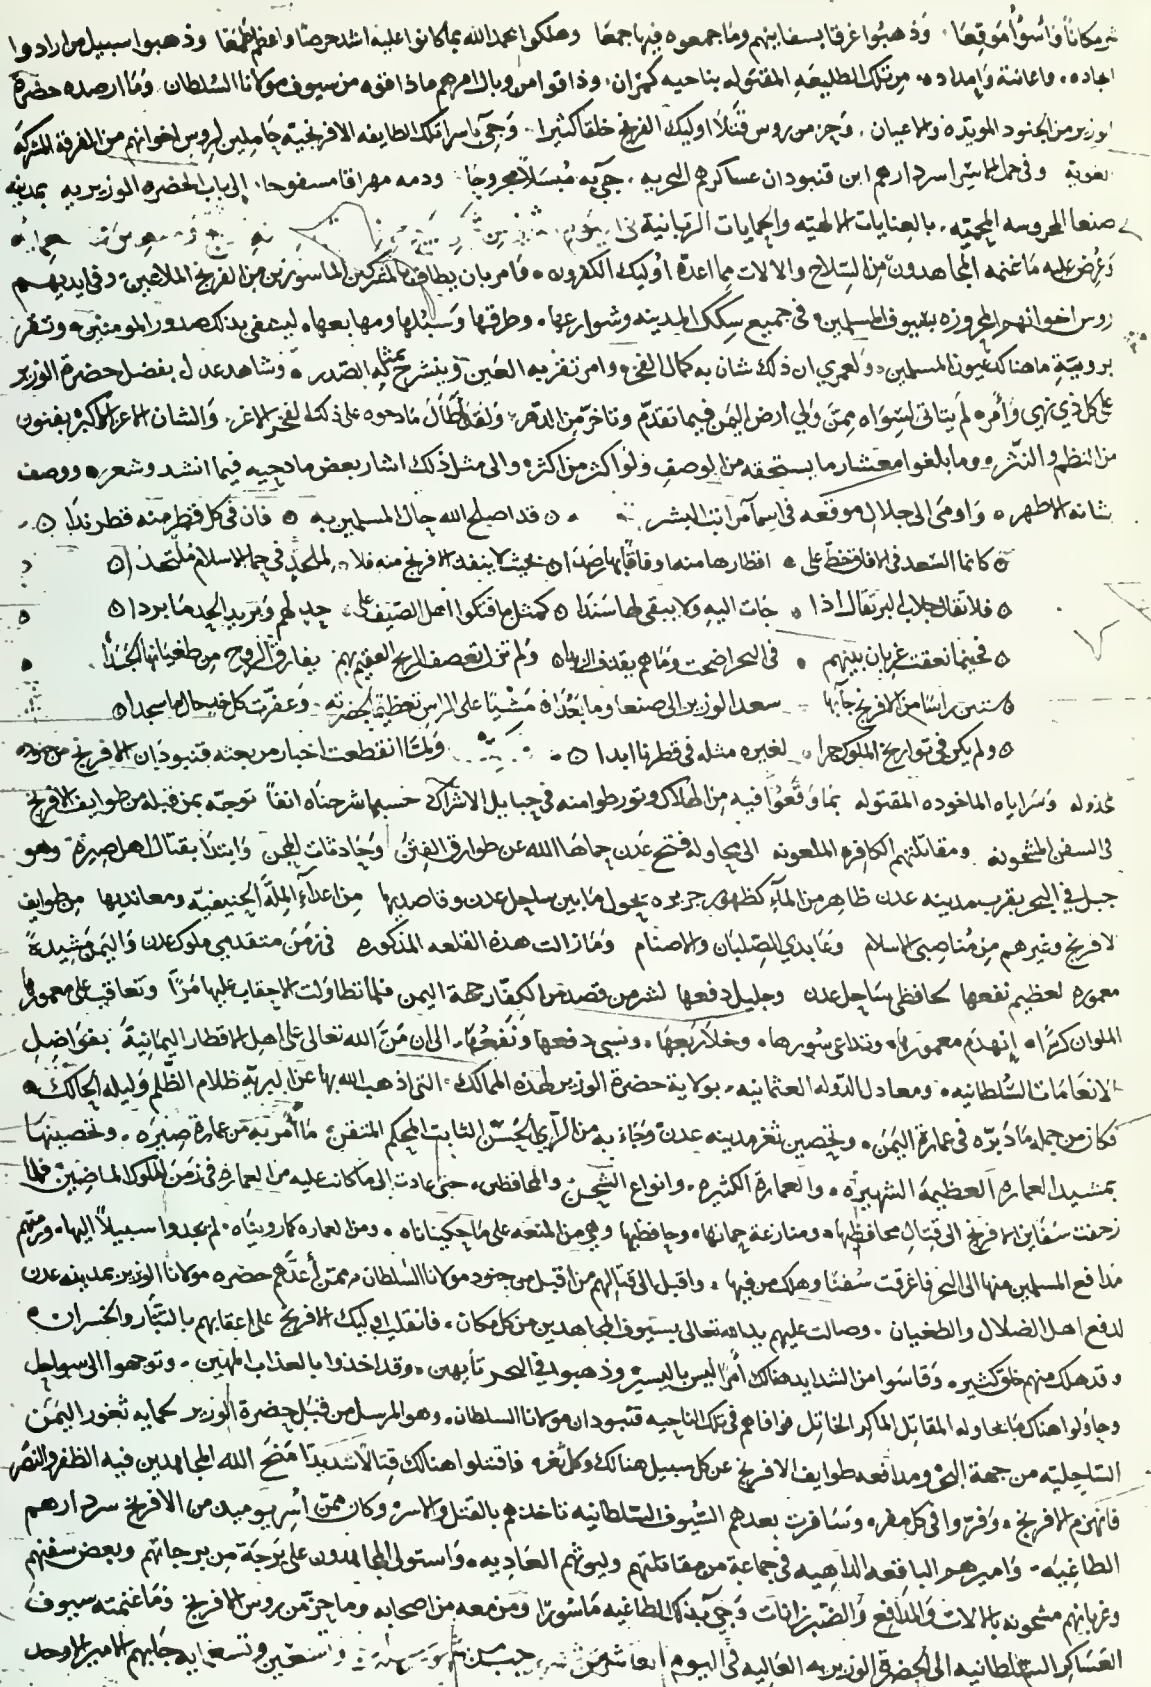 شر مكاناً واسوأ موقعا وذهبوا غرقا بسفاينهم وما جمعوه فيها جمعا وهلكوا بحمد الله بما كانوا عليه اشد حرصا واعظم طمعا وذهبوا سبيل من ارادوا
انجاده واعانته وامداده من تلك الطليعه المقتوله بناحيه كمران وذاقوا من وبال امرهم ماذاقوه من سيوف مولانا السلطان وما ارصده حضرة
الوزير من الجنود المويده والاعيان وجز من روس قتلا اوليك الفرنج خلقا كثيرا وجي باسرا تلك الطايفه الافرنجيه حاملين لروس اخوانهم من الفرقة المشركة
الغويه وفي حمل الاسرا سردارهم ابن قنبودان عساكرهم البحريه جي به مبسلا مجروحا ودمه مهراقا مسفوحا الى باب الحضره الوزيريه بمدينه
صنعا المحروسه المحميه بالعنايات الالهيه والحمايات الربانية
وعرض عليه ما غنمه المجاهدون من السلاح والالات مما اعده اوليك الكفرون وامر بان يطاف بالمشركين الماسورين من الفرنج الملاعين وفي ايديهم
روس اخوانهم المحزوزه بسيوف المسلمين في جميع سكك المدينه وشوارعها وطرقها وسبلها ومهايعها ليشفى بذلك صدور المومنين وتقر
بروية ما هنالك عيون المسلمين ولعمري ان ذلك شان به كمال الفخر وامر تقر به العين وينشرح بمثله الصدر وشاهد عدل بفضل حضرة الوزير
على كل ذي نهي وامره لم يتاتى لسواه ممن ولي ارض اليمن فيما تقدم وتاخر من الدهر ولقد اطال مادحوه على ذلك الفخر الاغر والشان الاعز الاكبر بفنون
من النظم والنثر وما بلغوا معشار ما يستحقه من الوصف ولو اكثر من اكثر والى مثل ذلك اشار بعض مادحيه فيما انشد وشعر ووصف
شانه الاطهر واومى الى جلال موقعه في اسما مراتب البشر قد اصلح الله حال المسلمين به فان في كل قطر منه قطر ندا
كانما السعد في الافاق خط على اقطارها منها وفاقا بها رصدا بحيث لا ينفد الافرنج منه فلا لملحد في حما الاسلام ملتحدا
فلا تقال جلاب البرتقال اذا جات اليه ولا يبقى لها سندا كمثل ما فتكوا اهل الصنيف على جد لهم وبريد الجد ما بردا
فحيثما نعقت غربان بينهم في البحر اضحت وما هم يقذف الزبدا ولم تزل تعصف الريح العقيم بهم يفارق الروح من طغيانها الجسدا
ستين راسا من الافرنج جا بها سعد الوزير الى صنعا وما بعدا مشيا على الراس تعظيما لحضرته وعفرت كل خد حال ما سجدا
ولم يكن في تواريخ الملوك جرا لغيره مثله في قطرنا ابدا ولما انقطعت اخبار من بعثه قنبودان الافرنج من جنوده
المخذوله وسراياه الماخوده المقتوله بما وقعوا فيه من الهلاك وتورطوا منه في حبايل الاشراك حسبما شرحناه انفا توجه بمن قبله من طوايف الافرنج
في السفن المشحونه ومقاتلتهم الكافره الملعونه الى محاوله فتح عدن حماها الله عن طوارق الفتن وحادثات المحن وابتدا بقتال اهل صيرة وهو
جبل في البحر بقرب مدينه عدن ظاهر من المآء كظهور جزيره يحول ما بين ساحل عدن وقاصديها من اعدآء الملة الحنيفيه ومعانديها من طوايف
الافرنج وغيرهم من مناصبي الاسلام وعابدي الصلبان والاصنام وما زالت هذه القلعه المذكوره في زمن متقدمي ملوك عدن واليمن مشيدة
معموره لعظيم نفعها لحافظي ساحل عدن وجليل دفعها لشر من قصد من الكفار جهة اليمن فلما تطاولت الاحقاب عليها مرا وتعاقب على معمورها
الملوان كرا انهدم معمورها وتداعى سورها وخلا ربعها ونسي دفعها ونفعها الى ان من الله تعالى على اهل الاقطار اليمانية بفواضل
الانعامات السلطانيه ومعادل الدوله العثمانيه بولاية حضرة الوزير لهذه الممالك التي اذهب الله بها عن البرية ظلام الظلم وليله الحالك
فكان من جمله ما دبره في عمارة اليمن وتحصين ثغر مدينه عدن وجاء به من الراي الحسن الثابت المحكم المتقن ما امر به من عمارة صيره وتحصينها
بمشيد العماره العظيمة الشهيره والعمارة الكثيره وانواع الشحن والمحافظين حتى عادت الى ما كانت عليه من العماره في زمن الملوك الماضين فلما
زحفت سفاين الافرنج الى قتال محافظيها ومنازعة حماتها وحافظيها وهي من المنعه على ما حكيناه ومن العماره كما رويناه لم يجدوا سبيلا اليها ورمتهم
مدافع المسلمين منها الى البحر فاغرقت سفنا وهلك من فيها واقبل الى قتالهم من اقبل من جنود مولانا السلطان ممن اعدهم حضره مولانا الوزير بمدينه عدن
لدفع اهل الضلال والطغيان وصالت عليهم يد الله تعالى بسيوف المجاهدين من كل مكان فانقلب اوليك الافرنج على اعقابهم بالتبار والخسران
وقد هلك منهم خلق كثير وقاسوا من الشدايد هنالك امرا ليس باليسير وذهبوا في البحر تايهين وقد اخذوا بالعذاب المهين وتوجهوا الى سواحل
وحاولوا هناك ما يحاوله المقاتل الماكر الخاتل فوافاهم في تلك الناحيه قنبودان مولانا السلطان وهو المرسل من قبل حضرة الوزير لحمايه ثغور اليمن
الساحليه من جهة البحر ومدافعه طوايف الافرنج عن كل سبيل هنالك وكل ثغر فاقتتلوا هنالك قتالا شديدا منح الله المجاهدين فيه الظفر والنصر
فانهزم الافرنج وفروا في كل مفر وسافرت بعدهم السيوف السلطانيه تاخذهم بالقتل والاسر وكان ممن اسر يوميد من الافرنج سردارهم
الطاغيه واميرهم الباقعه الداهيه في جماعة من مقاتلتهم وليوثهم العاديه واستولى المجاهدون على برجة من برجاتهم وبعض سفنهم
وغربانهم مشحونه بالالات والمدافع والضبرزانات وجي بذلك الطاغيه ماسورا ومن معه من اصحابه وما جز من روس الافرنج وما غنمته سيوف
العساكر السلطانيه الى الحضرة الوزيريه العاليه في اليوم العاشر من وتسعين وتسعمايه جا بهم الامير الاوحد